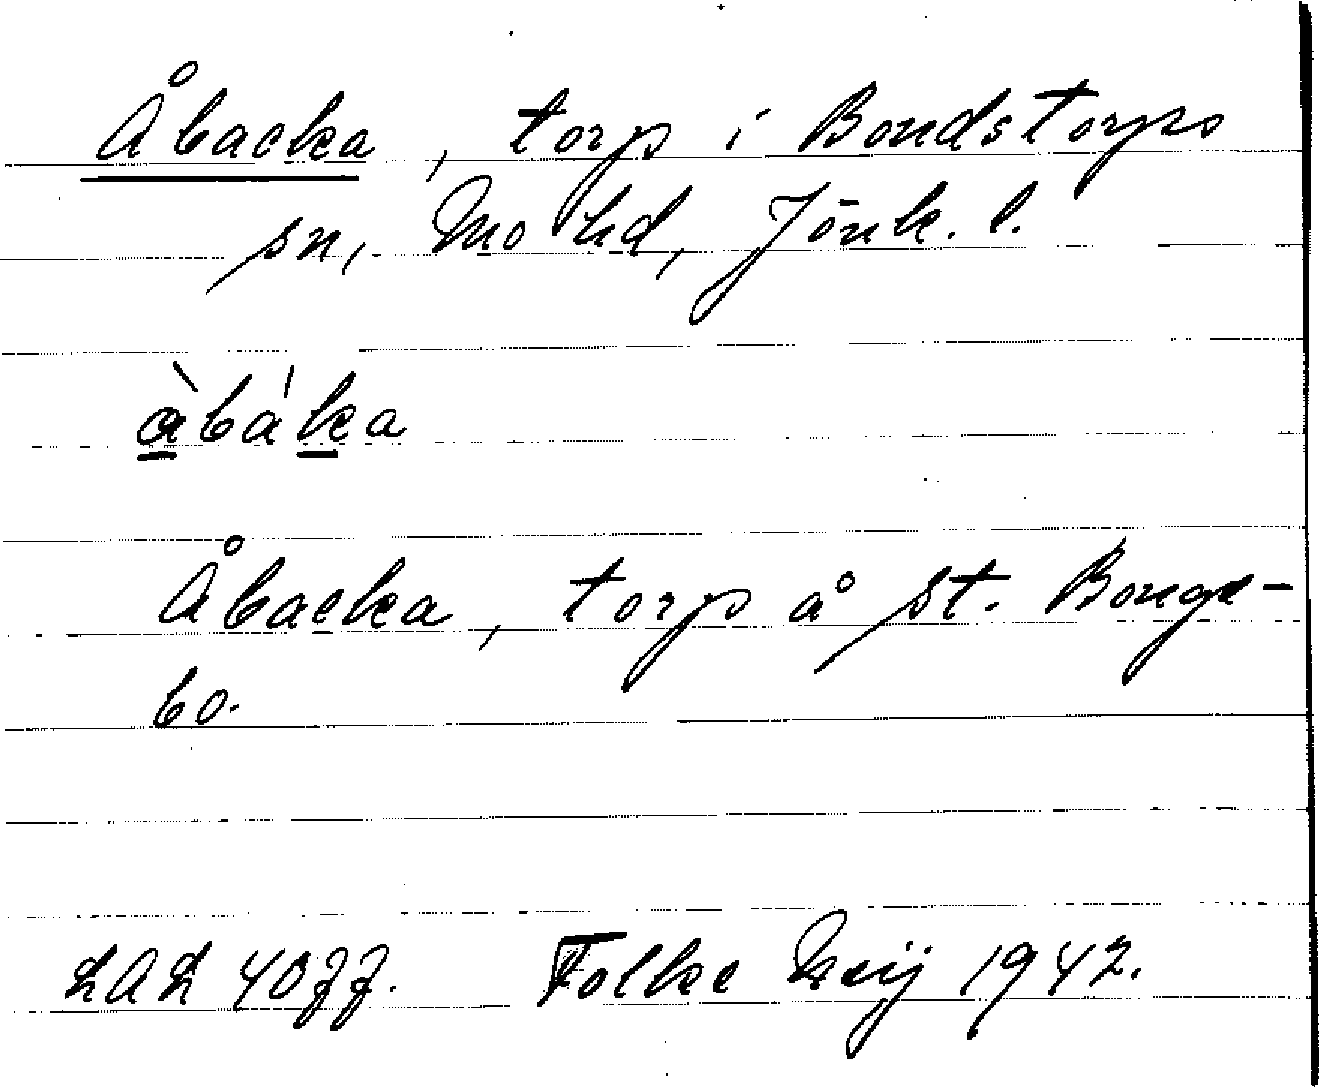 Åbacka, torp i Bondstorps
sn, Mo hd, Jönk. l.
àbáka
Åbacka, torp å St. Bonge-
bo.
LAL 4077. Folke Meij 1942.